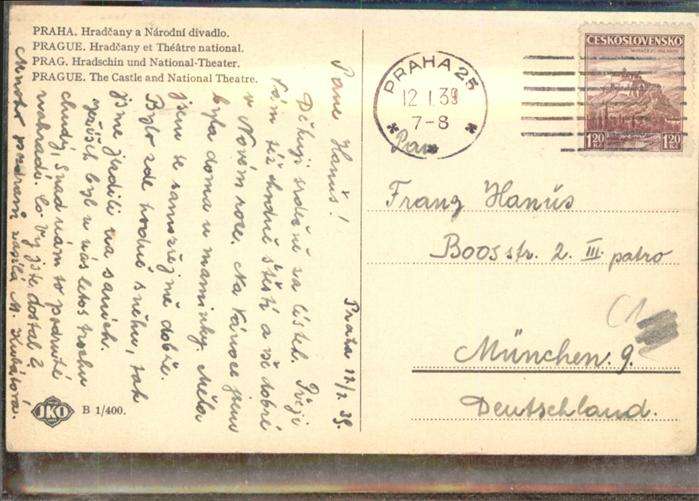 PRAHA. Hradčany a Národní divadlo.
PRAGUE. Hradčany et Théâtre national.
PRAG. Hradschin und National-Theater.
PRAGUE. The Castle and National Theatre.
Praha 12/1 39.
Pane Hanuš!
Děkuji srdečně za lístek. Přeji
Vám též hodně štěstí a vše dobré
v Novém roce. Na Vánoce jsem
byla doma u maminky. Měla
jsem se samozřejmě dobře.
Bylo zde hodně sněhu, tak
jsme jezdili na saních.
byl u nás letos trochu
chudý, snad nám to podruhé
nahradí. Co Vy jste dostal?
Mnoho pozdravů zasílá M. Kubátová.
JKO
B 1/400.
PRAHA 25
12 I 39
7-8
ČESKOSLOVENSKO
1.20 1.20
Franz Hanüs
Boosstr. 2. III. patro
München 9.
Deutschland.